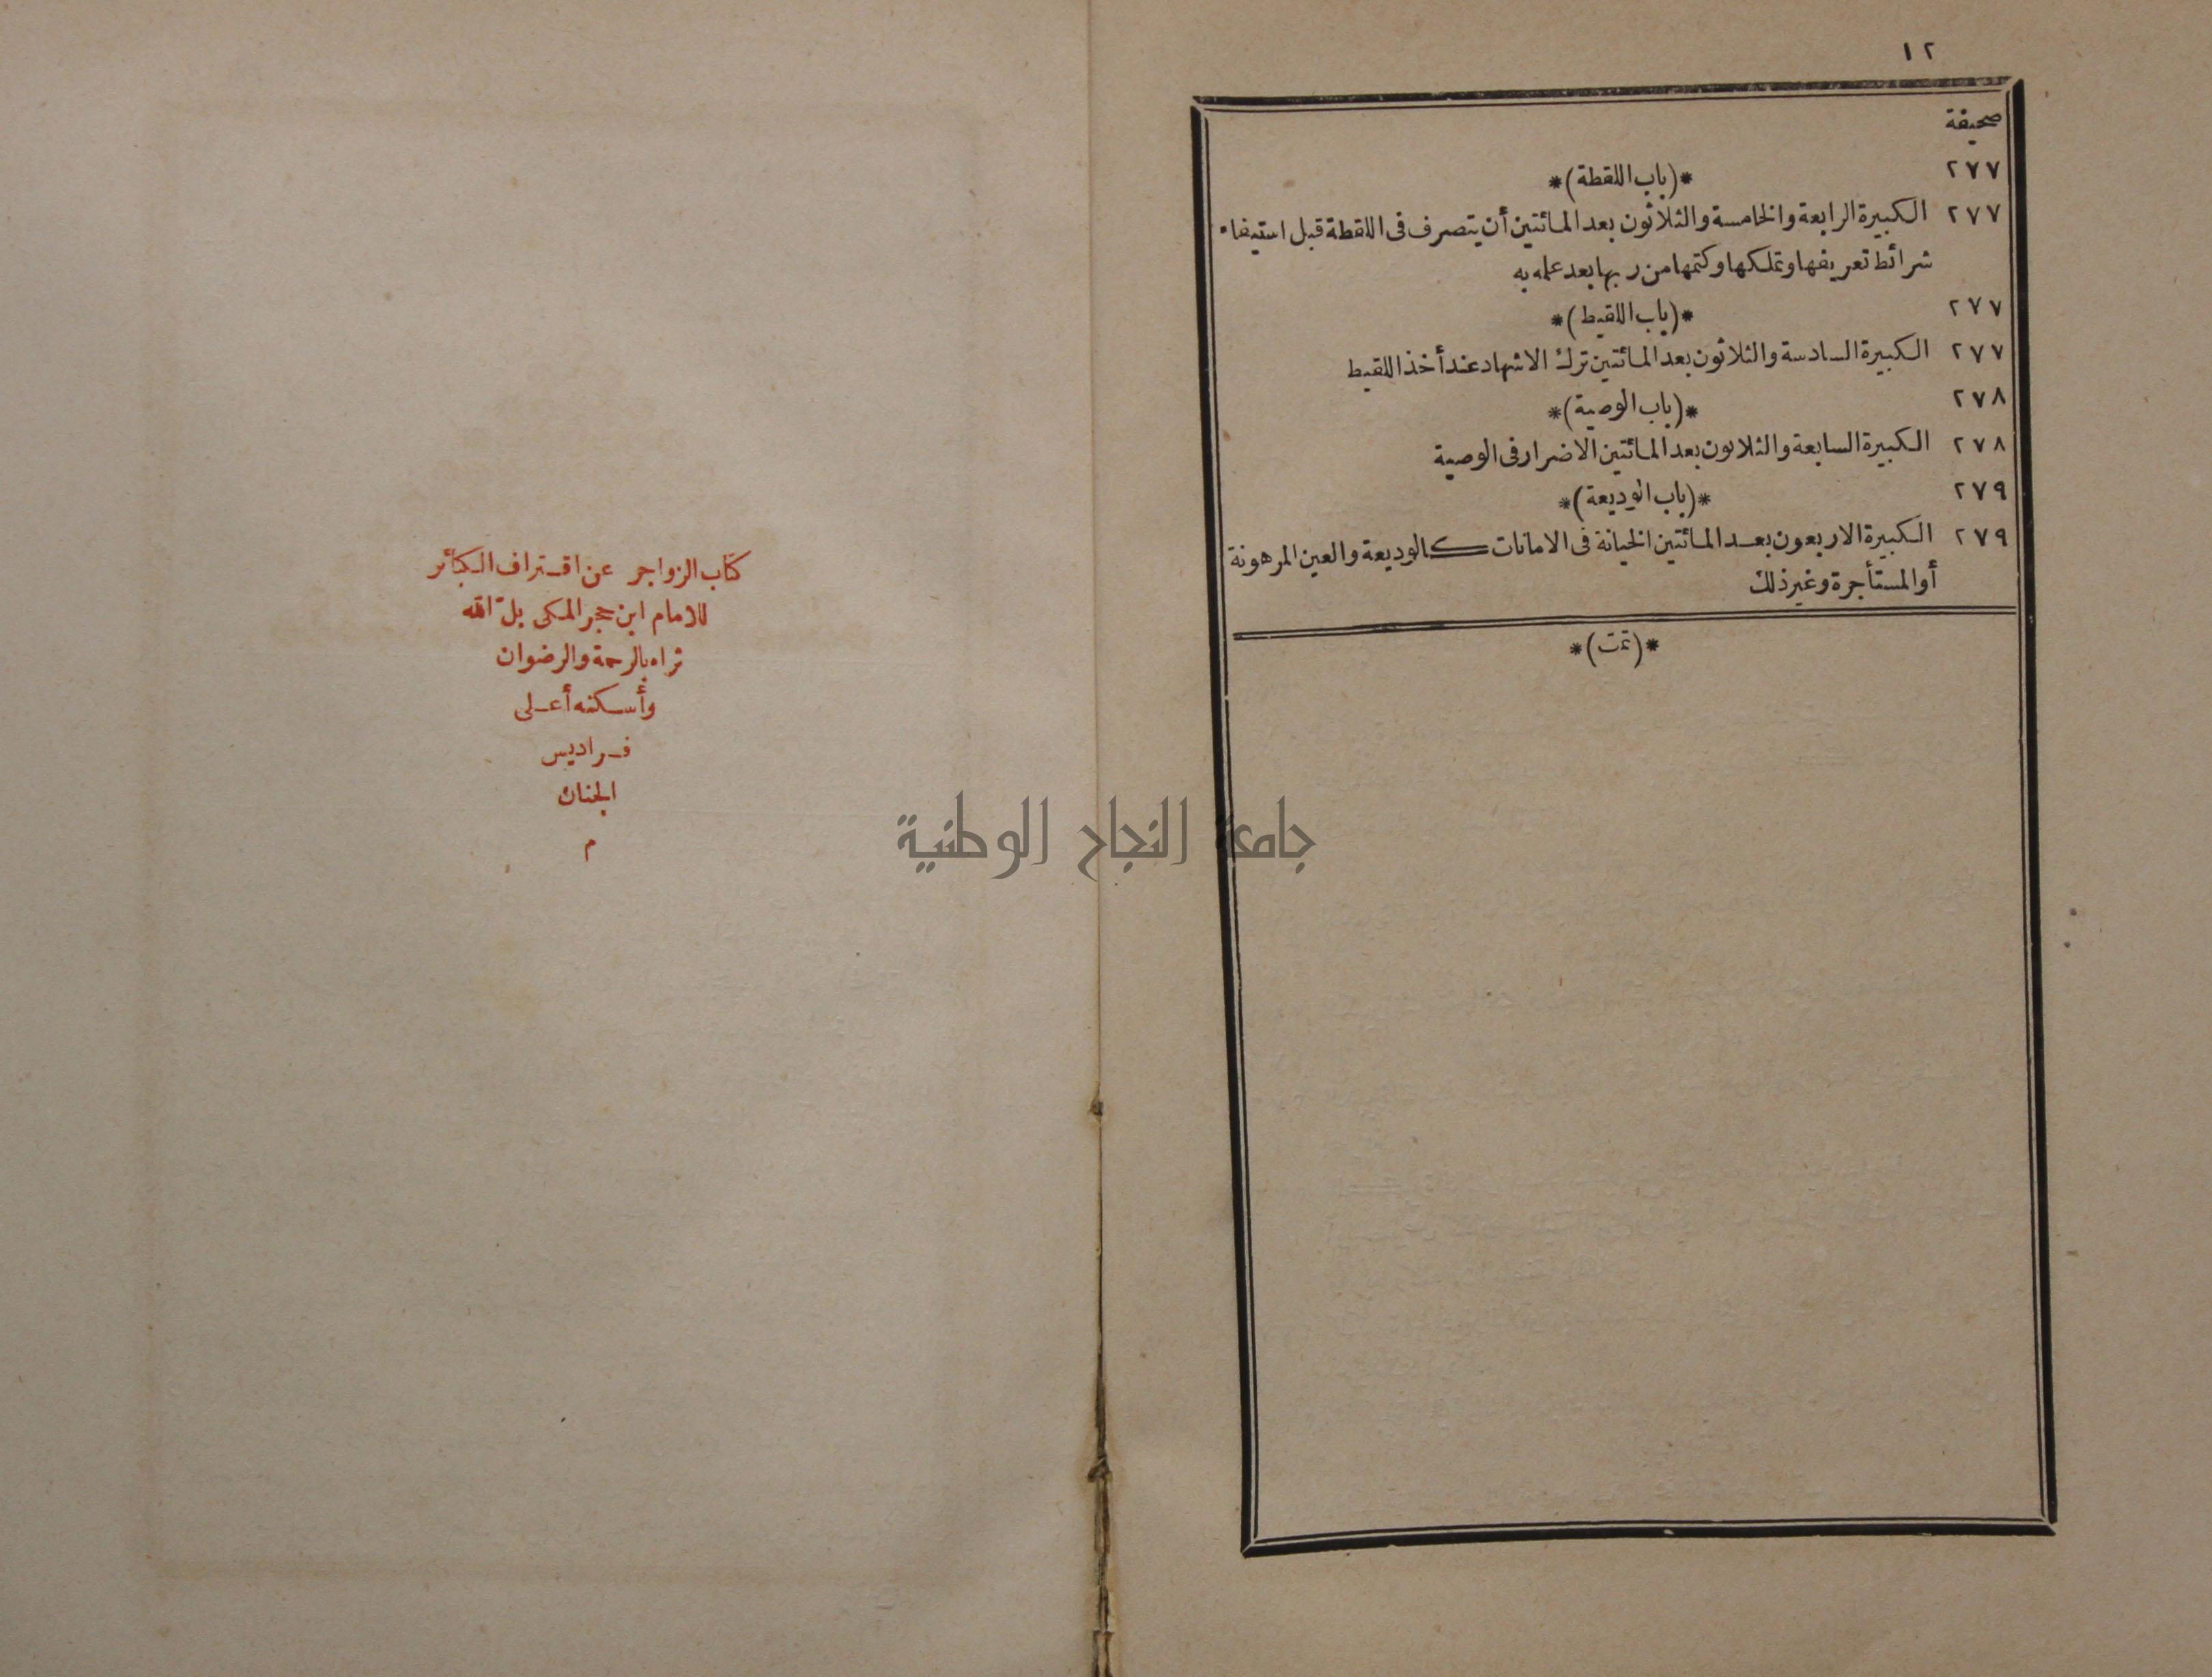 ١٢
صحيفة
٢٧٧ *(باب اللقطة)*
٢٧٧ الكبيرة الرابعة والخامسة والثلاثون بعد المائتين أن يتصرف فى اللقطة قبل استيفاء
شرائط تعريفها وتملكها وكتمها من ربها بعد علمه به
٢٧٧ *(باب اللقيط)*
٢٧٧ الكبيرة السادسة والثلاثون بعد المائتين ترك الاشهاد عند أخذ اللقيط
٢٧٨ *(باب الوصية)*
٢٧٨ الكبيرة السابعة والثلاثون بعد المائتين الاضرار فى الوصية
٢٧٩ *(باب الوديعة)*
٢٧٩ الكبيرة الاربعون بعد المائتين الخيانة فى الامانات كالوديعة والعين المرهونة
أو المستأجرة وغير ذلك
*(تمت)*
كتاب الزواجر عن اقتراف الكبائر
للامام ابن حجر المكى بل الله
ثراه بالرحمة والرضوان
وأسكنه أعلى
فراديس
الجنان
م
جامعة النجاح الوطنية